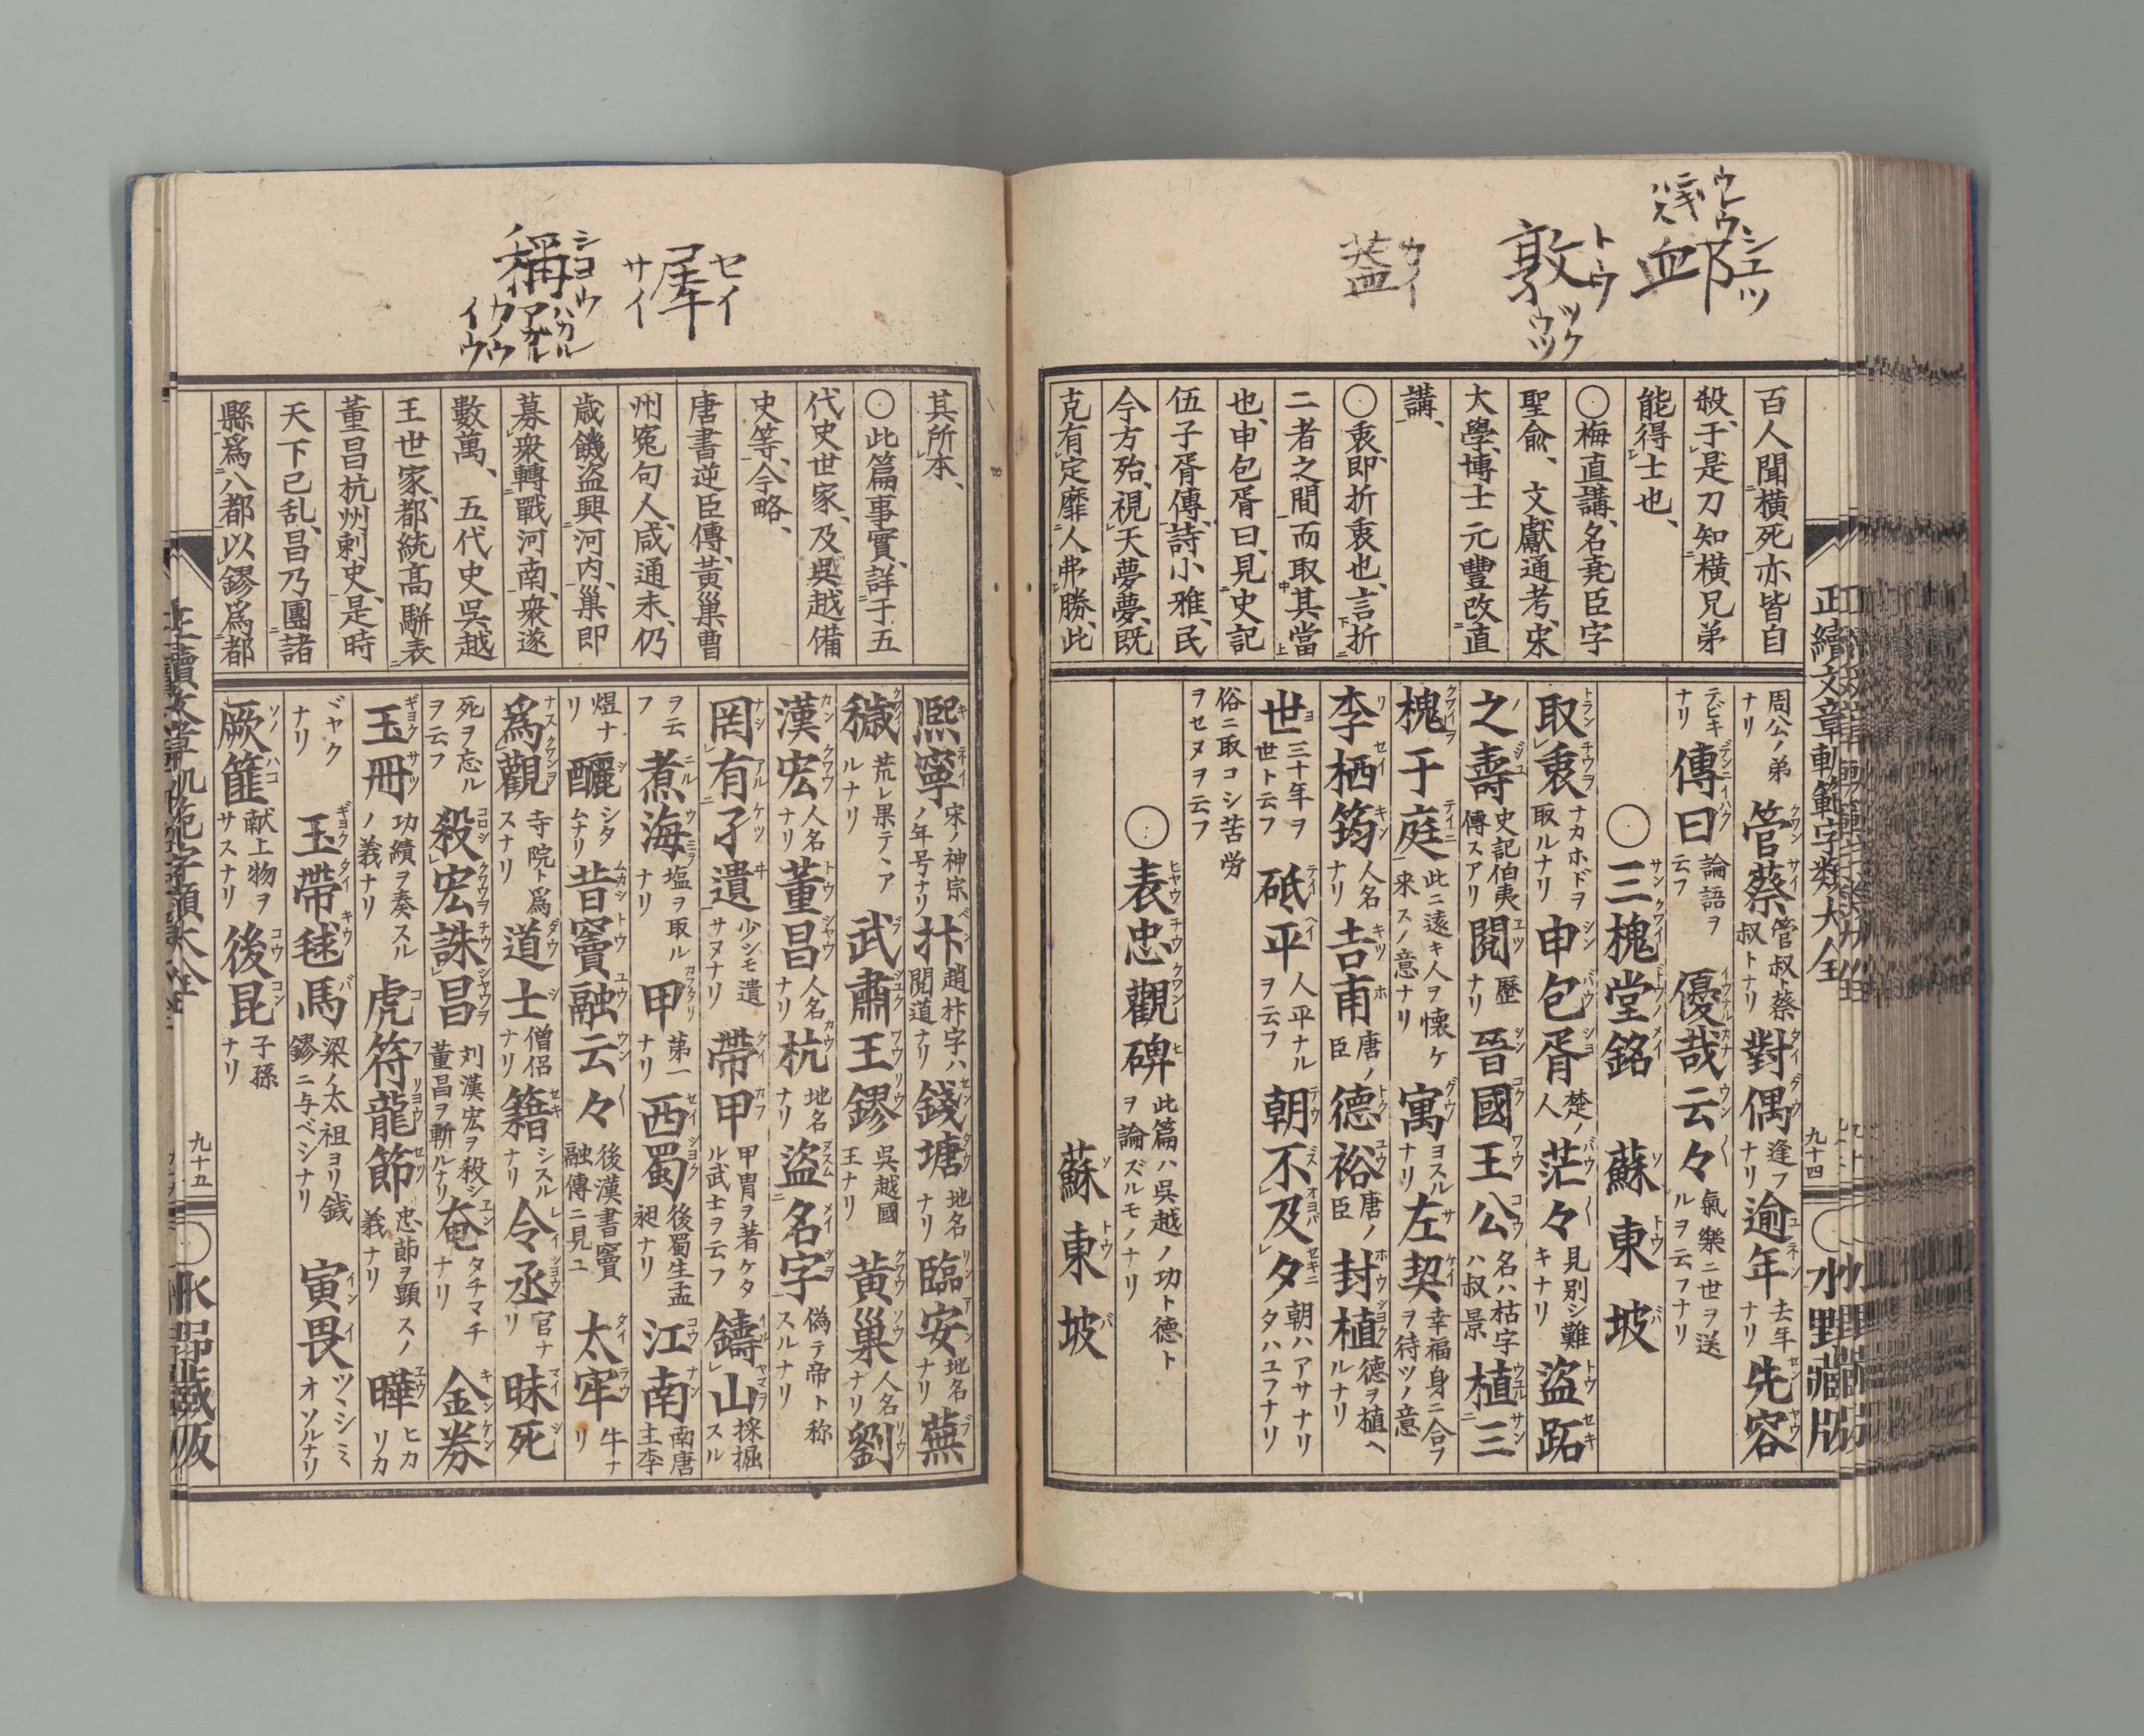 卹
シユツ
敦
トウ
盍
カイ
百人聞横死亦皆自
殺、于是乃知横兄弟
能得士也、
〇梅直講、名堯臣字
聖俞、文獻通考、宋
大學博士元豐改直
講、
〇衷即折衷也、言折
二者之間而取其當
也、申包胥曰、見史記
伍子胥傳、詩小雅、民
今方殆、視天夢夢、既
克有定靡人弗勝、此
周公ノ弟ナリ 管蔡 管叔ト蔡叔トナリ 對偶 逢フナリ 逾年 去年ナリ 先容
テビキナリ 傳曰 論語ヲ云フ 優哉云々 氣樂ニ世ヲ送ルヲ云フナリ
〇三槐堂銘 蘇東坡
取衷 ナカホドヲ取ルナリ 申包胥 楚ノ人 茫々 見別シ難キナリ 盗跖
之壽 史記伯夷傳スアリ 閲 歴ナリ 晉國王公 名ハ枯字ハ叔景 植三
槐于庭 此ニ遠キ人ヲ懐ケ来スノ意ナリ 寓 ヨスルナリ 左契 幸福身ニ合フヲ待ツノ意
李栖筠 人名ナリ 吉甫 唐ノ臣 德裕 唐ノ臣 封植 德ヲ植ヘルナリ
世 三十年ヲ世ト云フ 砥平 人平ナルヲ云フ 朝不及夕 朝ハアサナリタハユフナリ
俗ニ取コシ苦労ヲセヌヲ云フ
〇表忠觀碑 此篇ハ呉越ノ功ト德トヲ論ズルモノナリ
蘇東坡
正續文章軌範字類大全 九十四 〇水野藏版
犀
セイ
サイ
稱
シヨウ
ハカル
アガル
其所本、
〇此篇事實、詳于五
代史世家、及呉越備
史等、今略、
唐書逆臣傳、黃巢曹
州寃句人、咸通末、仍
歳饑盗興河内、巢即
募衆轉戰河南、衆遂
數萬、五代史呉越
王世家、都統高駢表
董昌杭州刺史、是時
天下已乱、昌乃團諸
縣爲八都以鏐爲都
熙寧 宋ノ神宗ノ年号ナリ 抃 趙抃字ハ閲道ナリ 錢塘 地名ナリ 臨安 地名ナリ 蕪
穢 荒レ果テヽアルナリ 武肅王鏐 呉越國王ナリ 黃巢 人名ナリ 劉
漢宏 人名ナリ 董昌 人名ナリ 杭 地名ナリ 盗名字 偽テ帝ト称スルナリ
罔有孑遺 少シモ遺サヌナリ 帶甲 甲冑ヲ著ケタル武士ヲ云フ 鑄山 採掘スル
ヲ云フ 煮海 塩ヲ取ルナリ 甲 第一ナリ 西蜀 後蜀生孟昶ナリ 江南 南唐主李
煜ナリ 釃 シタムナリ 昔竇融云々 後漢書竇融傳ニ見ユ 太牢 牛ナリ
爲觀 寺院ト爲スナリ 道士 僧侶ナリ 籍 シスルナリ 令丞 官ナリ 昧死
死ヲ忘ルヲ云フ 殺宏誅昌 刘漢宏ヲ殺シ董昌ヲ斬ルナリ 奄 タチマチナリ 金券
玉冊 功績ヲ奏スルノ義ナリ 虎符龍節 忠節ヲ顕スノ義ナリ 曄 ヒカリカ
ヾヤクナリ 玉帶毬馬 梁ノ太祖ヨリ銭鏐ニ与ベシナリ 寅畏 ツヽシミオソルナリ
厥篚 献上物ヲサスナリ 後昆 子孫ナリ
九十五